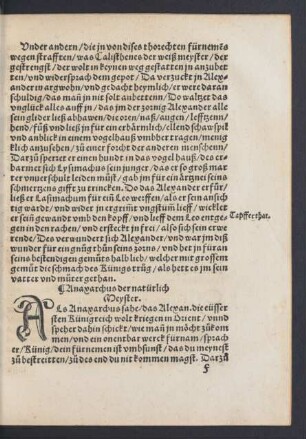 Vnder andern/die jn von diſes thorechten fürnemēs
wegen ſtrafften/was Caliſthenes der weiß meyſter/der
geſtrengſt/der wolt in keynen weg geſtatten jn anzubet
ten/vnd widerſprach dem gepot/Da verzuckt jn Alex-
ander in argwohn/vnd gedacht heymlich/er were daran
ſchuldig/das man jn nit ſolt anbettenn/Do waltzet das
vnglück alles auff jn/das jm der zoinig Alexander alle
ſein glider ließ abhawen/die oren/naß/augen/lefftzenn/
hend/füß vnd ließ jn für ein erbärmlich/ellend ſchawſpil
vnd anblick in einem vogelhauß vmbher tragen/menig
klich anzuſehen/zu einer forcht der anderen menſchenn/
Darzů ſperret er einen hundt in das vogel hauß/des er-
barmet ſich Lyſimachus ſein junger/das er ſo groß mar
ter vnuerſchult leiden můſt/gab jm für ein ärtznei ſeins
ſchmertzens gifft zu trincken. Do das Alexander erfür/
ließ er Laſimachum für ein Leo werffen/als er ſen anſich
tig wardt/vnd wider jn ergrimt vngſtüm lieff/wicklet
er ſein gewandt vmb den kopff/vnd lieff dem Leo entge-
gen in den rachen/vnd erſteckt jn frei/alſo ſich ſein erwe
rende/Des verwundert ſich Alexander/vnd war jm diß
wunder für ein gnůgthůn ſeins zorns/vnd het jn für an
ſeins beſtendigen gemüts halb lieb/welcher mit groſſem
gemüt die ſchmach des Künigs trůg/als hett es jm ſein
vatter vnd můter gethan.
Tapffer that.
¶ Anaxarchus der natürlich
Meyſter.
ALs Anaxarchus ſahe/das Alexan. die eüſſer
ſten Künigreich wolt kriegen in Orient/vnnd
ſpeher dahin ſchickt/wie man jn möcht zůkom
men/vnd ein onentbar werck fürnam/ſprach
er/Künig/dein fürnemen iſt vmbſunſt/das du meyneſt
zů beſtreitten/zů des end du nit kommen magſt. Darzů
f